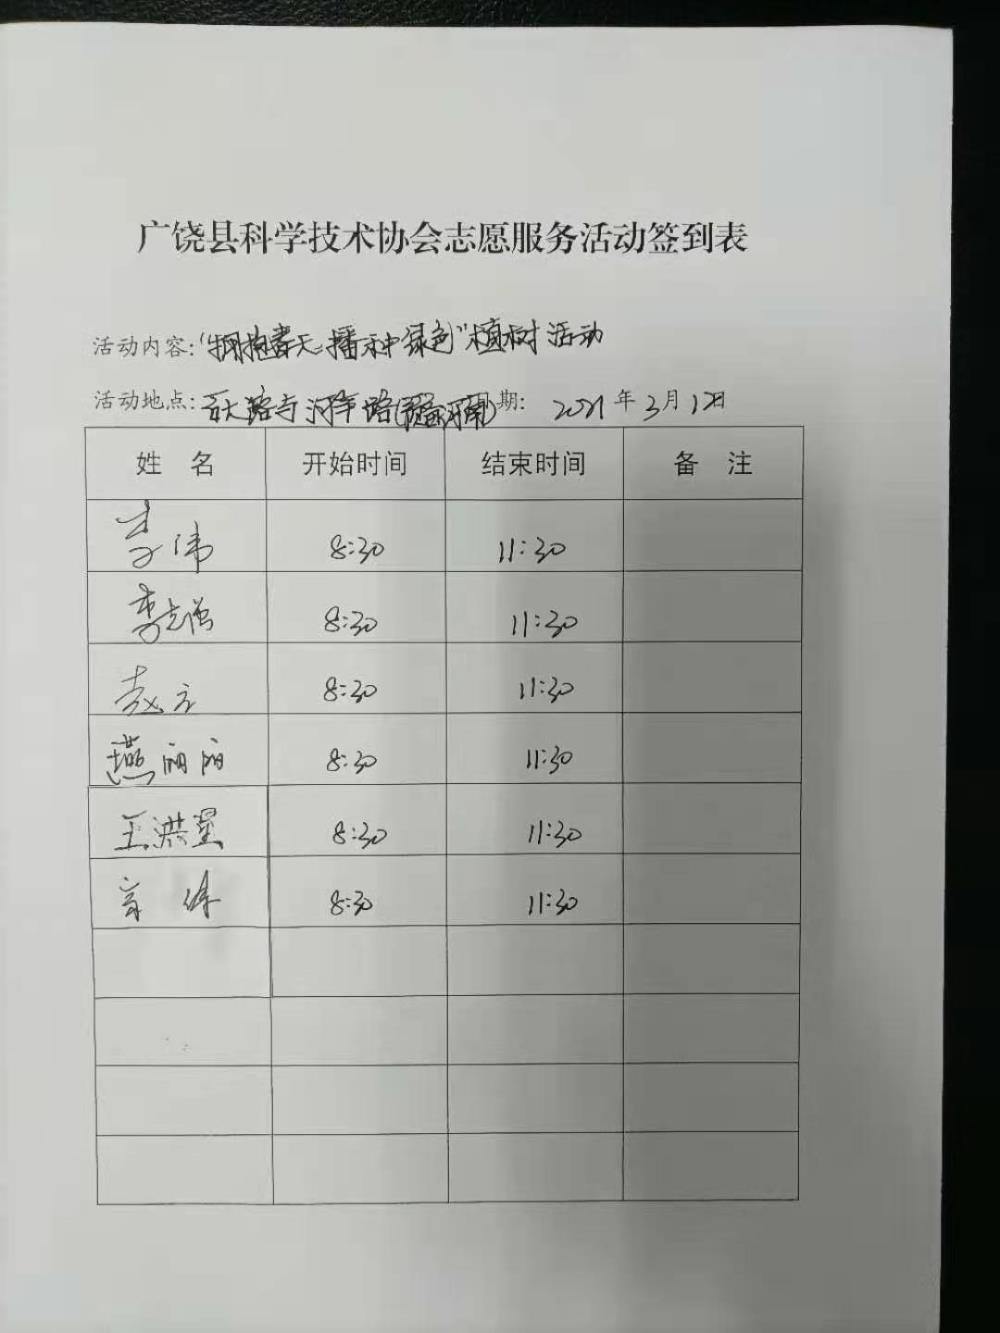 广饶县科学技术协会志愿服务活动签到表
活动内容:“拥抱春天、播种绿色”植树活动
活动地点: 日期: 2021年3月12日
姓 名 开始时间 结束时间 备 注
李伟 8:30 11:30
李志增 8:30 11:30
赵方 8:30 11:30
燕丽丽 8:30 11:30
王洪星 8:30 11:30
8:30 11:30